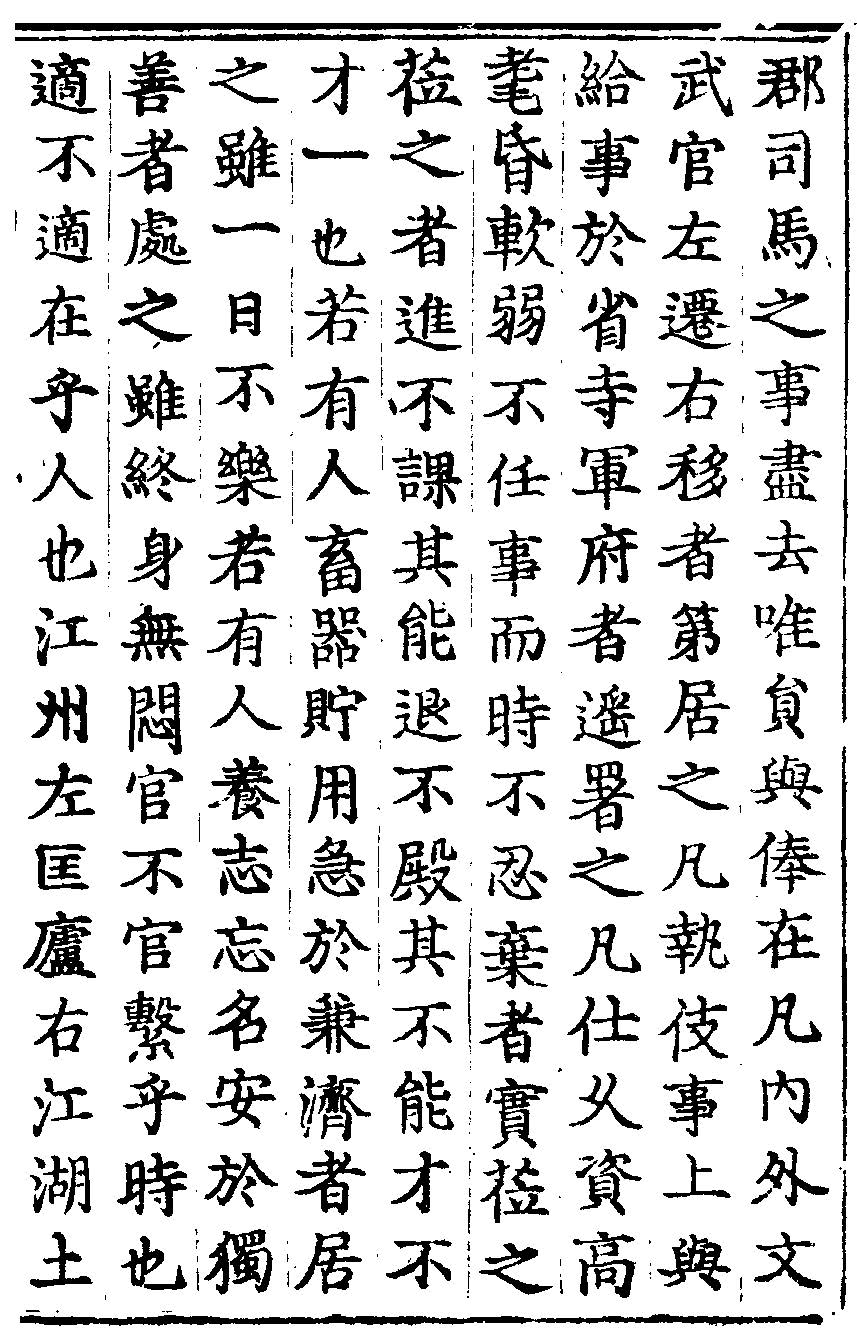 郡司馬之事盡去唯貟與俸在凡內外文
武官左遷右移者第居之凡執伎事上與
給事於省寺軍府者遥署之凡仕乆資高
耄昏軟弱不任事而時不忍棄者實莅之
莅之者進不課其能退不殿其不能才不
才一也若有人畜器貯用急於兼濟者居
之雖一日不樂若有人養志忘名安於獨
善者處之雖終身無悶官不官繫乎時也
適不適在乎人也江州左匡廬右江湖土